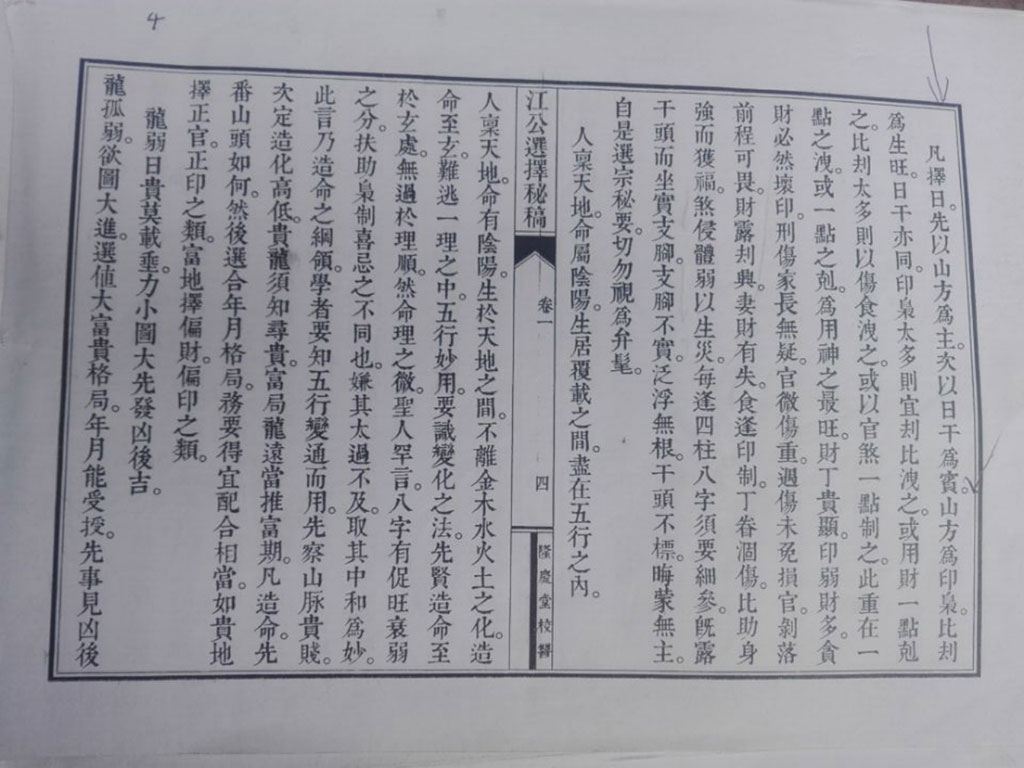 4
凡擇日。先以山方為主。次以日干為賓。山方為印梟。比刦
為生旺。日干亦同。印梟太多則宜刦比洩之。或用財一點剋
之。比刦太多則以傷食洩之。或以官煞一點制之。此重在一
點之洩。或一點之剋。為用神之最旺。財丁貴顯。印弱財多。貪
財必然壞印。刑傷家長無疑。官微傷重。遇傷未免損官。剝落
前程可畏。財露刦興。妻財有失。食逢印制。丁眷涸傷。比助身
強而獲福。煞侵體弱以生災。每逢四柱八字須要細參。既露
干頭而坐實支腳。支腳不實。泛浮無根。干頭不標。晦蒙無主。
自是選宗秘要。切勿視為弁髦。
人稟天地。命屬陰陽。生居覆載之間。盡在五行之內。
江公選擇秘稿
卷一
四
隆慶堂校醫
人稟天地。命有陰陽。生於天地之間。不離金木水火土之化。造
命至玄。難逃一理之中。五行妙用。要識變化之法。先賢造命至
於玄處。無過於理順。然命理之微。聖人罕言。八字有促旺衰弱
之分。扶助梟制喜忌之不同也。嫌其太過不及。取其中和為妙。
此言乃造命之綱領。學者要知五行變通而用。先察山脉貴賤。
次定造化高低。貴龍須知尋貴。富局龍遠當推富期。凡造命。先
番山頭如何。然後選合年月格局。務要得宜配合相當。如貴地
擇正官。正印之類。富地擇偏財。偏印之類。
龍弱日貴莫載。垂力小圖大先發凶後吉。
龍孤弱。欲圖大進。選値大富貴格局。年月能受授。先事見凶後